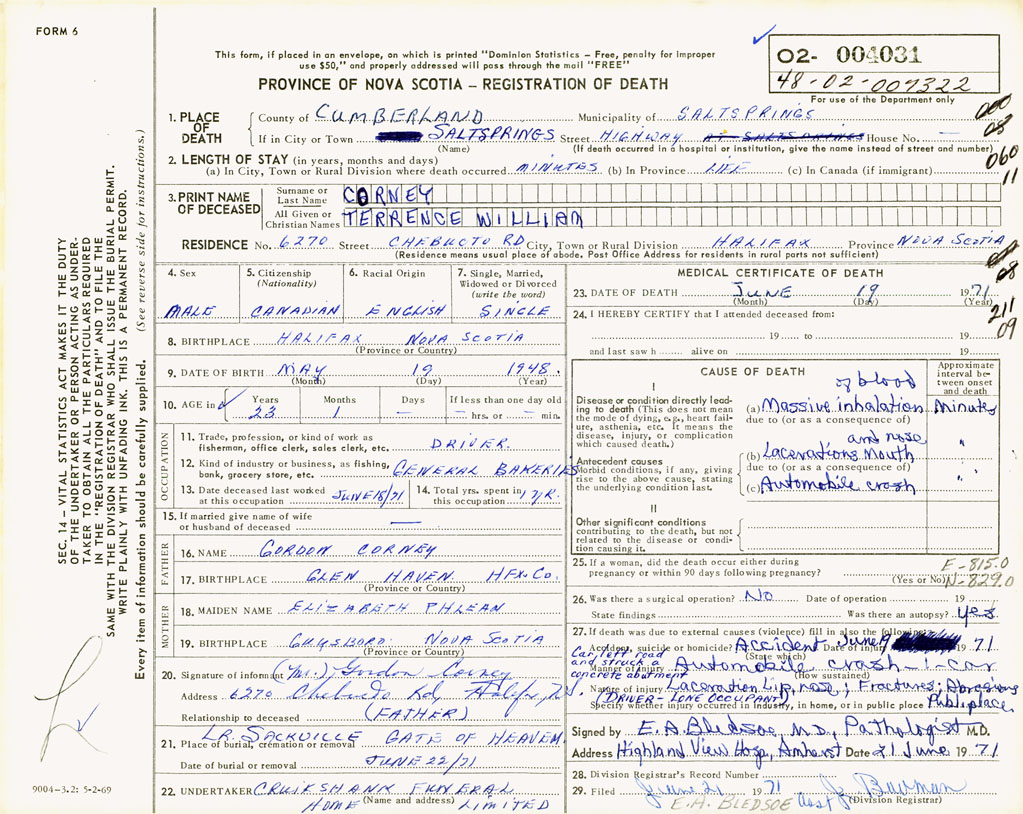 FORM 6
This form, if placed in an envelope, on which is printed "Dominion Statistics – Free, penalty for improper
use $50," and properly addressed will pass through the mail "FREE"
PROVINCE OF NOVA SCOTIA – REGISTRATION OF DEATH
02- 004031
48-02-007322
For use of the Department only
1. PLACE OF DEATH
County of CUMBERLAND Municipality of SALTSPRINGS
If in City or Town SALTSPRINGS Street HIGHWAY AT SALTSPRINGS House No. —
(Name) (If death occurred in a hospital or institution, give the name instead of street and number)
000
08
060
11
2. LENGTH OF STAY (in years, months and days)
(a) In City, Town or Rural Division where death occurred MINUTES (b) In Province LIFE (c) In Canada (if immigrant)
3. PRINT NAME OF DECEASED
Surname or Last Name CORNEY
All Given or Christian Names TERRENCE WILLIAM
RESIDENCE No. 6270 Street CHEBUCTO RD City, Town or Rural Division HALIFAX Province NOVA SCOTIA
(Residence means usual place of abode. Post Office Address for residents in rural parts not sufficient)
08
211
09
4. Sex
MALE
5. Citizenship (Nationality)
CANADIAN
6. Racial Origin
ENGLISH
7. Single, Married, Widowed or Divorced (write the word)
SINGLE
8. BIRTHPLACE HALIFAX NOVA SCOTIA
(Province or Country)
9. DATE OF BIRTH MAY 19 1948.
(Month) (Day) (Year)
10. AGE in
Years Months Days If less than one day old
23 1 — — hrs. or — min.
OCCUPATION
11. Trade, profession, or kind of work as
fisherman, office clerk, sales clerk, etc. DRIVER.
12. Kind of industry or business, as fishing,
bank, grocery store, etc. GENERAL BAKERIES
13. Date deceased last worked
at this occupation JUNE 18/71
14. Total yrs. spent in
this occupation 1 YR.
15. If married give name of wife
or husband of deceased —
FATHER
16. NAME GORDON CORNEY
17. BIRTHPLACE GLEN HAVEN HFX. CO.
(Province or Country)
MOTHER
18. MAIDEN NAME ELIZABETH PHLEAN
19. BIRTHPLACE GUYSBORO. NOVA SCOTIA
(Province or Country)
20. Signature of informant (Mr.) Gordon Corney
Address 6270 Chebucto Rd, Halifax, N.S.
Relationship to deceased (FATHER)
LR. SACKVILLE GATE OF HEAVEN
21. Place of burial, cremation or removal
Date of burial or removal JUNE 22/71
22. UNDERTAKER CRUIKSHANK FUNERAL
HOME (Name and address) LIMITED
MEDICAL CERTIFICATE OF DEATH
23. DATE OF DEATH JUNE 19 1971
(Month) (Day) (Year)
24. I HEREBY CERTIFY that I attended deceased from:
19 to 19
and last saw h alive on 19
CAUSE OF DEATH
Approximate interval between onset and death
I
Disease or condition directly leading to death (This does not mean the mode of dying, e.g., heart failure, asthenia, etc. It means the disease, injury, or complication which caused death.)
of blood
(a) Massive inhalation Minutes
due to (or as a consequence of)
Antecedent causes
Morbid conditions, if any, giving rise to the above cause, stating the underlying condition last.
and nose
(b) Lacerations Mouth "
due to (or as a consequence of)
(c) Automobile crash "
II
Other significant conditions
contributing to the death, but not related to the disease or condition causing it.
25. If a woman, did the death occur either during
pregnancy or within 90 days following pregnancy?
(Yes or No)
E-815.0
N-829.0
26. Was there a surgical operation? No Date of operation 19
State findings Was there an autopsy? yes
27. If death was due to external causes (violence) fill in also the following:
Accident, suicide or homicide? Accident Date of injury June 19 1971
(State which)
Car left road
and struck a
concrete abutment
Manner of injury Automobile crash-1-car
(How sustained)
Nature of injury Laceration Lip, nose; Fractures; Abrasions
(DRIVER - LONE OCCUPANT)
Specify whether injury occurred in industry, in home, or in public place Public place
Signed by E.A. Bledsoe, M.D., Pathologist M.D.
Address Highland View Hosp, Amherst Date 21 June 1971
28. Division Registrar's Record Number
29. Filed June 21 1971
E. A. BLEDSOE
(Division Registrar)
SEC. 14 – VITAL STATISTICS ACT MAKES IT THE DUTY
OF THE UNDERTAKER OR PERSON ACTING AS UNDER-
TAKER TO OBTAIN ALL THE PARTICULARS REQUIRED
IN THE "REGISTRATION OF DEATH" AND TO FILE THE
SAME WITH THE DIVISION REGISTRAR WHO SHALL ISSUE THE BURIAL PERMIT.
WRITE PLAINLY WITH UNFADING INK. THIS IS A PERMANENT RECORD.
Every item of information should be carefully supplied. (See reverse side for instructions.)
9004-3.2: 5-2-69